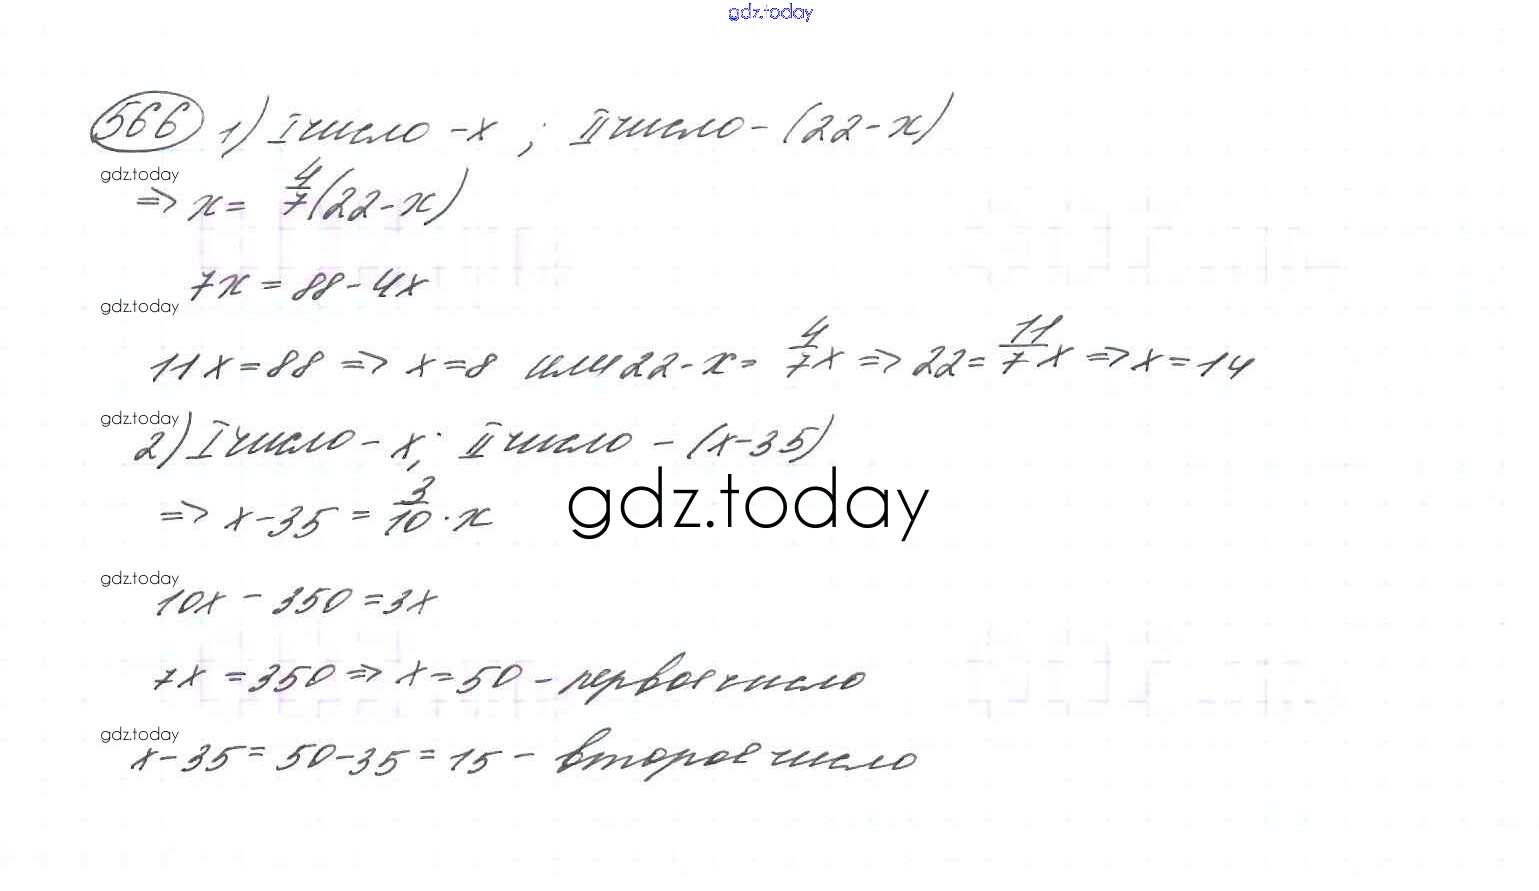 gdz.today
566 1) I число - x ; II число - (22 - x)
gdz.today
=> x = 4/7 (22 - x)
7x = 88 - 4x
gdz.today
11x = 88 => x = 8 или 22 - x = 4/7 x => 22 = 11/7 x => x = 14
gdz.today
2) I число - x; II число - (x - 35)
gdz.today
=> x - 35 = 3/10 · x
gdz.today
10x - 350 = 3x
7x = 350 => x = 50 - первое число
gdz.today
x - 35 = 50 - 35 = 15 - второе число